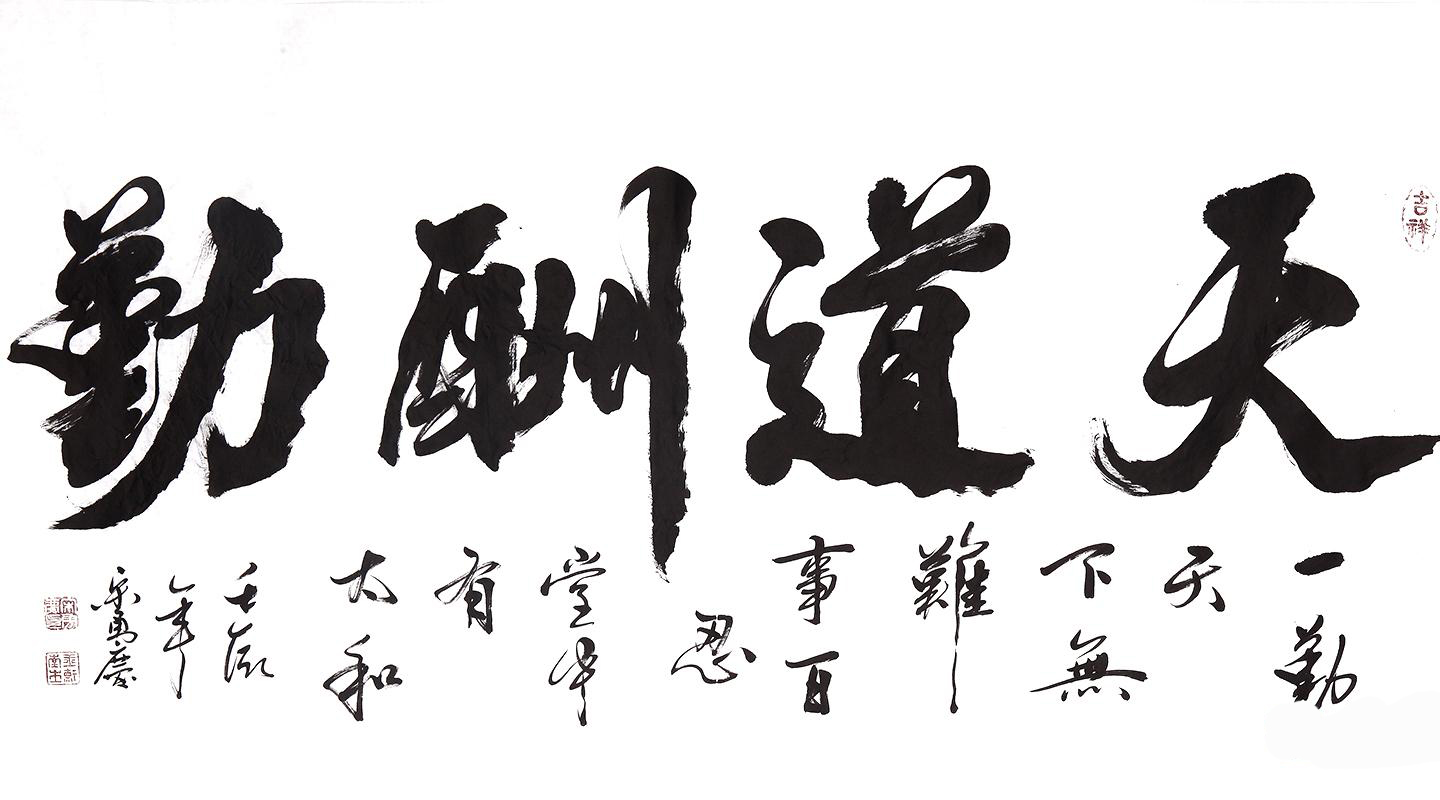 吉祥
天道酬勤
一勤
天
下無
難
事百
忍
堂中
有
太和
壬辰
年